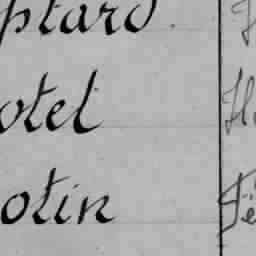 ptard.
otel
otin